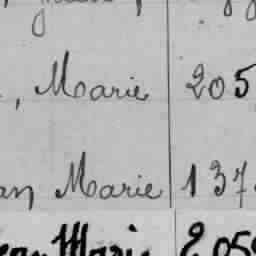 , Marie 205
an Marie 137
Marie 205